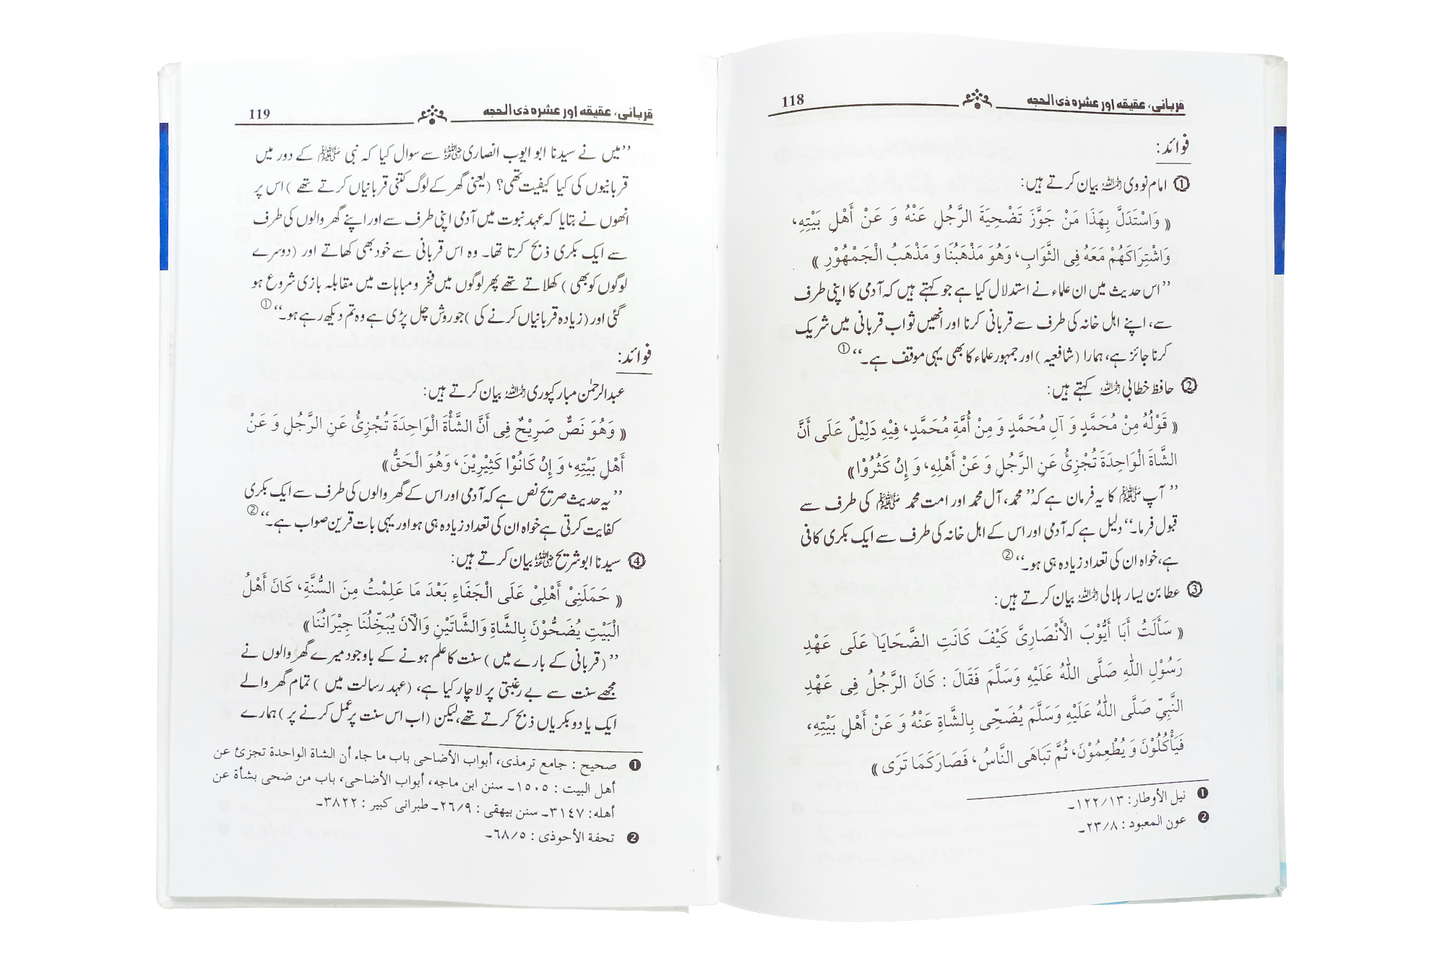 قربانی، عقیقہ اور عشرہ ذی الحجہ
118
فوائد:
① امام نووی رحمہ اللہ بیان کرتے ہیں:
(( وَاسْتَدَلَّ بِهٰذَا مَنْ جَوَّزَ تَضْحِيَةَ الرَّجُلِ عَنْهُ وَ عَنْ أَهْلِ بَيْتِهِ،
وَاشْتِرَاكَهُمْ مَعَهُ فِی الثَّوَابِ، وَهُوَ مَذْهَبُنَا وَ مَذْهَبُ الْجَمْهُوْرِ ))
’’اس حدیث میں ان علماء نے استدلال کیا ہے جو کہتے ہیں کہ آدمی کا اپنی طرف
سے، اپنے اہل خانہ کی طرف سے قربانی کرنا اور انھیں ثواب قربانی میں شریک
کرنا جائز ہے، ہمارا (شافعیہ) اور جمہور علماء کا بھی یہی موقف ہے۔‘‘ ①
② حافظ خطابی رحمہ اللہ کہتے ہیں:
(( قَوْلُهُ مِنْ مُحَمَّدٍ وَ آلِ مُحَمَّدٍ وَ مِنْ أُمَّةِ مُحَمَّدٍ، فِيْهِ دَلِيْلٌ عَلَى أَنَّ
الشَّاةَ الْوَاحِدَةَ تُجْزِئُ عَنِ الرَّجُلِ وَ عَنْ أَهْلِهِ، وَ إِنْ كَثُرُوْا ))
’’ آپ ﷺ کا یہ فرمان ہے کہ ’’محمد، آل محمد اور امت محمد ﷺ کی طرف سے
قبول فرما۔‘‘ دلیل ہے کہ آدمی اور اس کے اہل خانہ کی طرف سے ایک بکری کافی
ہے، خواہ ان کی تعداد زیادہ ہی ہو۔‘‘ ②
③ عطا بن یسار ہلالی رحمہ اللہ بیان کرتے ہیں:
(( سَأَلْتُ أَبَا أَيُّوْبَ الْأَنْصَارِیَّ كَيْفَ كَانَتِ الضَّحَايَا عَلَى عَهْدِ
رَسُوْلِ اللهِ صَلَّى اللهُ عَلَيْهِ وَسَلَّمَ فَقَالَ : كَانَ الرَّجُلُ فِی عَهْدِ
النَّبِیِّ صَلَّى اللهُ عَلَيْهِ وَسَلَّمَ يُضَحِّی بِالشَّاةِ عَنْهُ وَ عَنْ أَهْلِ بَيْتِهِ،
فَيَأْكُلُوْنَ وَ يُطْعِمُوْنَ، ثُمَّ تَبَاهَى النَّاسُ، فَصَارَ كَمَا تَرَى ))
❶ نیل الأوطار: ۱۲۲/۱۳۔
❷ عون المعبود : ۲۳/۸۔
قربانی، عقیقہ اور عشرہ ذی الحجہ
119
’’میں نے سیدنا ابو ایوب انصاری رضی اللہ عنہ سے سوال کیا کہ نبی ﷺ کے دور میں
قربانیوں کی کیا کیفیت تھی؟ (یعنی گھر کے لوگ کتنی قربانیاں کرتے تھے) اس پر
انھوں نے بتایا کہ عہد نبوت میں آدمی اپنی طرف سے اور اپنے گھر والوں کی طرف
سے ایک بکری ذبح کرتا تھا۔ وہ اس قربانی سے خود بھی کھاتے اور (دوسرے
لوگوں کو بھی) کھلاتے تھے پھر لوگوں میں فخر و مباہات میں مقابلہ بازی شروع ہو
گئی اور (زیادہ قربانیاں کرنے کی) جو روش چل پڑی ہے وہ تم دیکھ رہے ہو۔‘‘ ①
فوائد:
عبدالرحمٰن مبارکپوری رحمہ اللہ بیان کرتے ہیں:
(( وَهُوَ نَصٌّ صَرِيْحٌ فِی أَنَّ الشَّأْةَ الْوَاحِدَةَ تُجْزِئُ عَنِ الرَّجُلِ وَ عَنْ
أَهْلِ بَيْتِهِ، وَ إِنْ كَانُوْا كَثِيْرِيْنَ، وَهُوَ الْحَقُّ ))
’’یہ حدیث صریح نص ہے کہ آدمی اور اس کے گھر والوں کی طرف سے ایک بکری
کفایت کرتی ہے خواہ ان کی تعداد زیادہ ہی ہو اور یہی بات قرین صواب ہے۔‘‘ ②
④ سیدنا ابو شریح رضی اللہ عنہ بیان کرتے ہیں:
(( حَمَلَنِیْ أَهْلِیْ عَلَى الْجَفَاءِ بَعْدَ مَا عَلِمْتُ مِنَ السُّنَّةِ، كَانَ أَهْلُ
الْبَيْتِ يُضَحُّوْنَ بِالشَّاةِ وَالشَّاتَيْنِ وَالْآنَ يُبَخِّلُنَا جِيْرَانُنَا ))
’’(قربانی کے بارے میں) سنت کا علم ہونے کے باوجود میرے گھر والوں نے
مجھے سنت سے بے رغبتی پر لاچار کیا ہے، (عہد رسالت میں) تمام گھر والے
ایک یا دو بکریاں ذبح کرتے تھے، لیکن (اب اس سنت پر عمل کرنے پر) ہمارے
❶ صحیح : جامع ترمذی، أبواب الأضاحی باب ما جاء أن الشاة الواحدة تجزئ عن
أهل البيت : ۱۵۰۵۔ سنن ابن ماجه، أبواب الأضاحی، باب من ضحى بشأة عن
أهله: ۳۱۴۷۔ سنن بیهقی : ۲۶/۹۔ طبرانی کبیر : ۳۸۲۲۔
❷ تحفة الأحوذی : ۶۸/۵۔